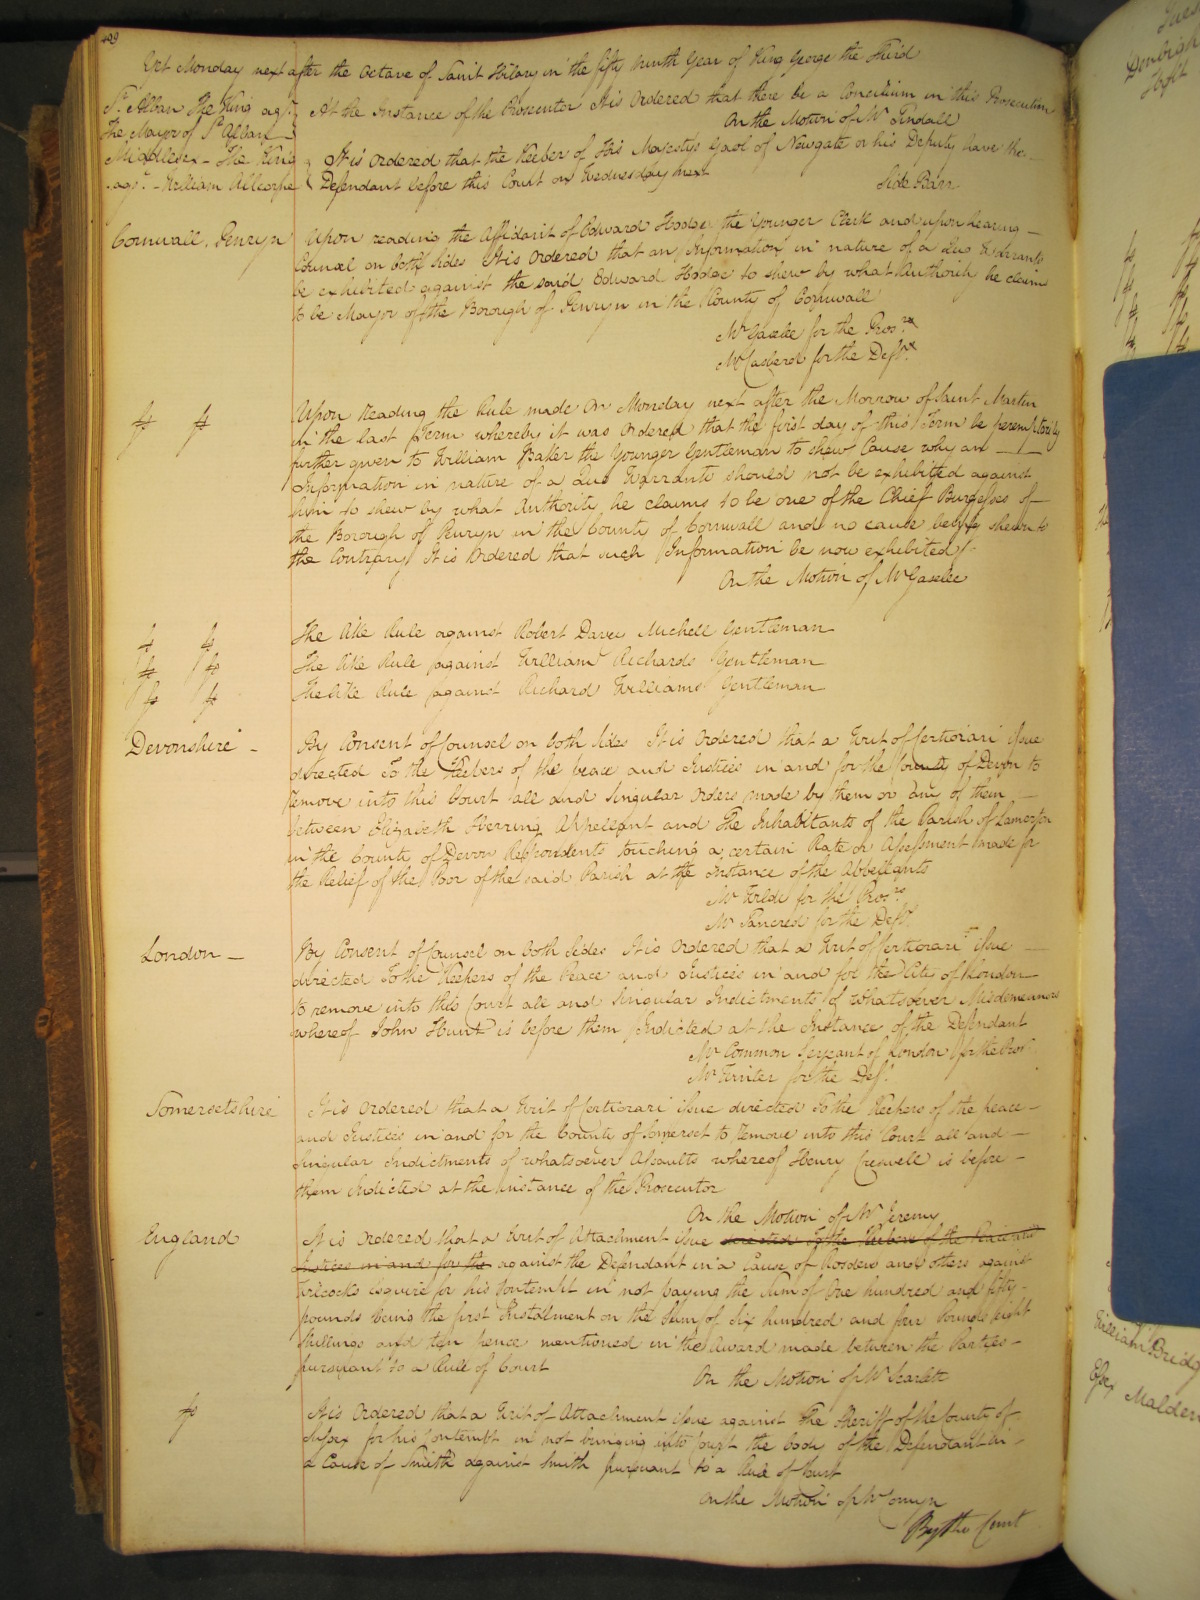 Yet Monday next after the Octave of Saint Hilary in the fifty ninth Year of King George the Third
St. Alban The King agt.
the Mayor of St Alban
At the Instance of the Prosecutor It is Ordered that there be a Concilium in this Prosecution
On the Motion of Mr Tindall
Middlesex - The King
agt. - William
It is Ordered that the Keeper of His Majestys Gaol of Newgate or his Deputy have the
Defendant before this Court on Wednesday next
Side Barr
Cornwall. Penryn
Upon reading the Affidavit of Edward Hodge the Younger Clerk and upon hearing
Counsel on both Sides It is Ordered that an Information in nature of a Quo Warranto
be exhibited against the said Edward Hodge to shew by what Authority he claims
to be Mayor of the Borough of Penryn in the County of Cornwall
Mr Gaselee for the Prosr.
Mr Casberd for the Deft.
Upon reading the Rule made on Monday next after the Morrow of Saint Martin
in the last Term whereby it was Ordered that the first day of this Term be peremptorily
further given to William Baker the Younger Gentleman to shew Cause why an
Information in nature of a Quo Warranto should not be exhibited against
him to shew by what Authority he claims to be one of the Chief Burgesses of
the Borough of Penryn in the County of Cornwall and no cause being shewn to
the Contrary It is Ordered that such Information be now exhibited
On the Motion of Mr Gaselee
The like Rule against Robert Davey Michell Gentleman
The like Rule against William Richards Gentleman
The like Rule against Richard Williams Gentleman
Devonshire -
By Consent of Counsel on both Sides It is Ordered that a Writ of Certiorari issue
directed To the Keepers of the peace and Justices in and for the County of Devon to
remove into this Court all and Singular Orders made by them or any of them
between Elizabeth Herring Appellant and The Inhabitants of the Parish of Lamerton
in the County of Devon Respondents touching a certain Rate or Assessment made for
the Relief of the Poor of the said Parish at the instance of the Appellants
Mr Wilde for the Prosr.
Mr Tancred for the Deft.
London -
By Consent of Counsel on both Sides It is Ordered that a Writ of Certiorari issue
directed To the Keepers of the Peace and Justices in and for the City of London
to remove into this Court all and Singular Indictments of whatsoever Misdemeanors
whereof John Hunt is before them Indicted at the Instance of the Defendant
Mr Common Serjeant of London for the Prosr.
Mr Winter for the Deft.
Somersetshire
It is Ordered that a Writ of Certiorari issue directed To the Keepers of the peace
and Justices in and for the County of Somerset to remove into this Court all and
Singular Indictments of whatsoever Assaults whereof Henry Creswell is before
them Indicted at the instance of the Prosecutor
On the Motion of Mr Jeremy
England
It is Ordered that a Writ of Attachment issue directed To the Keepers of the Peace and
Justices in and for the against the Defendant in a Cause of Rosdew and others against
Wilcocks Esquire for his Contempt in not paying the Sum of One hundred and fifty
pounds being the first Instalment on the Sum of Six hundred and four Pounds eight
Shillings and ten pence mentioned in the Award made between the Parties
pursuant to a Rule of Court
On the Motion of Mr Scarlett
It is Ordered that a Writ of Attachment issue against the Sheriff of the County of
Sussex for his Contempt in not bringing into Court the body of the Defendant in
a Cause of Smith against Smith pursuant to a Rule of Court
On the Motion of Mr Comyn
By the Court
Denbigh
Holt
William Bridg
Essex Malden